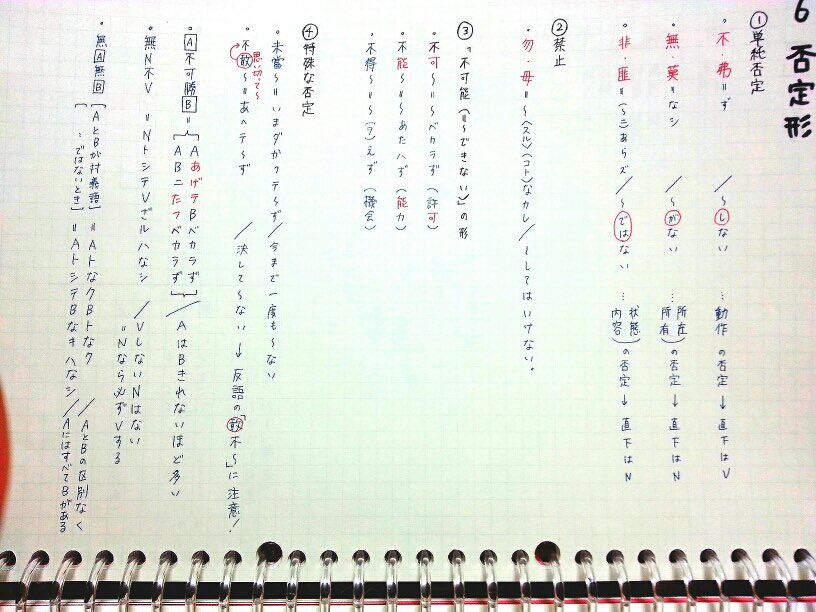 6 否定形
①単純否定
・不・弗＝ず ／ 〜しない … 動作の否定 → 直下はV
・無・莫＝なシ ／ 〜がない … 所在 所有 の否定 → 直下はN
・非・匪＝(〜ニ)あらズ ／ 〜ではない … 状態 内容 の否定 → 直下はN
②禁止
・勿・毋＝〜〈スル〉〈コト〉なカレ ／ 〜してはいけない。
③「不可能(＝〜できない)」の形
・不可〜＝〜ベカラず (許可)
・不能〜＝〜あたハず (能力)
・不得〜＝〜(ヲ)えず (機会)
④特殊な否定
・未嘗〜＝いまダかつテ〜ず ／ 今まで一度も〜ない
思い切って〜
・不敢〜＝あヘテ〜ず ／ 決して〜ない → 反語の「敢不〜」に注意!
・A不可勝B＝ Aあげテ Bベカラず
ABニたフベカラず ／ AはBきれないほど多い
・無N不V ＝NトシテVざルハなシ ／ VしないNはない
＝Nなら必ずVする
・無A無B [AとBが対義語] ＝AトなクBトなク ／ AとBの区別なく
[〃ではないとき] ＝AトシテBなキハなシ ／ AにはすべてBがある